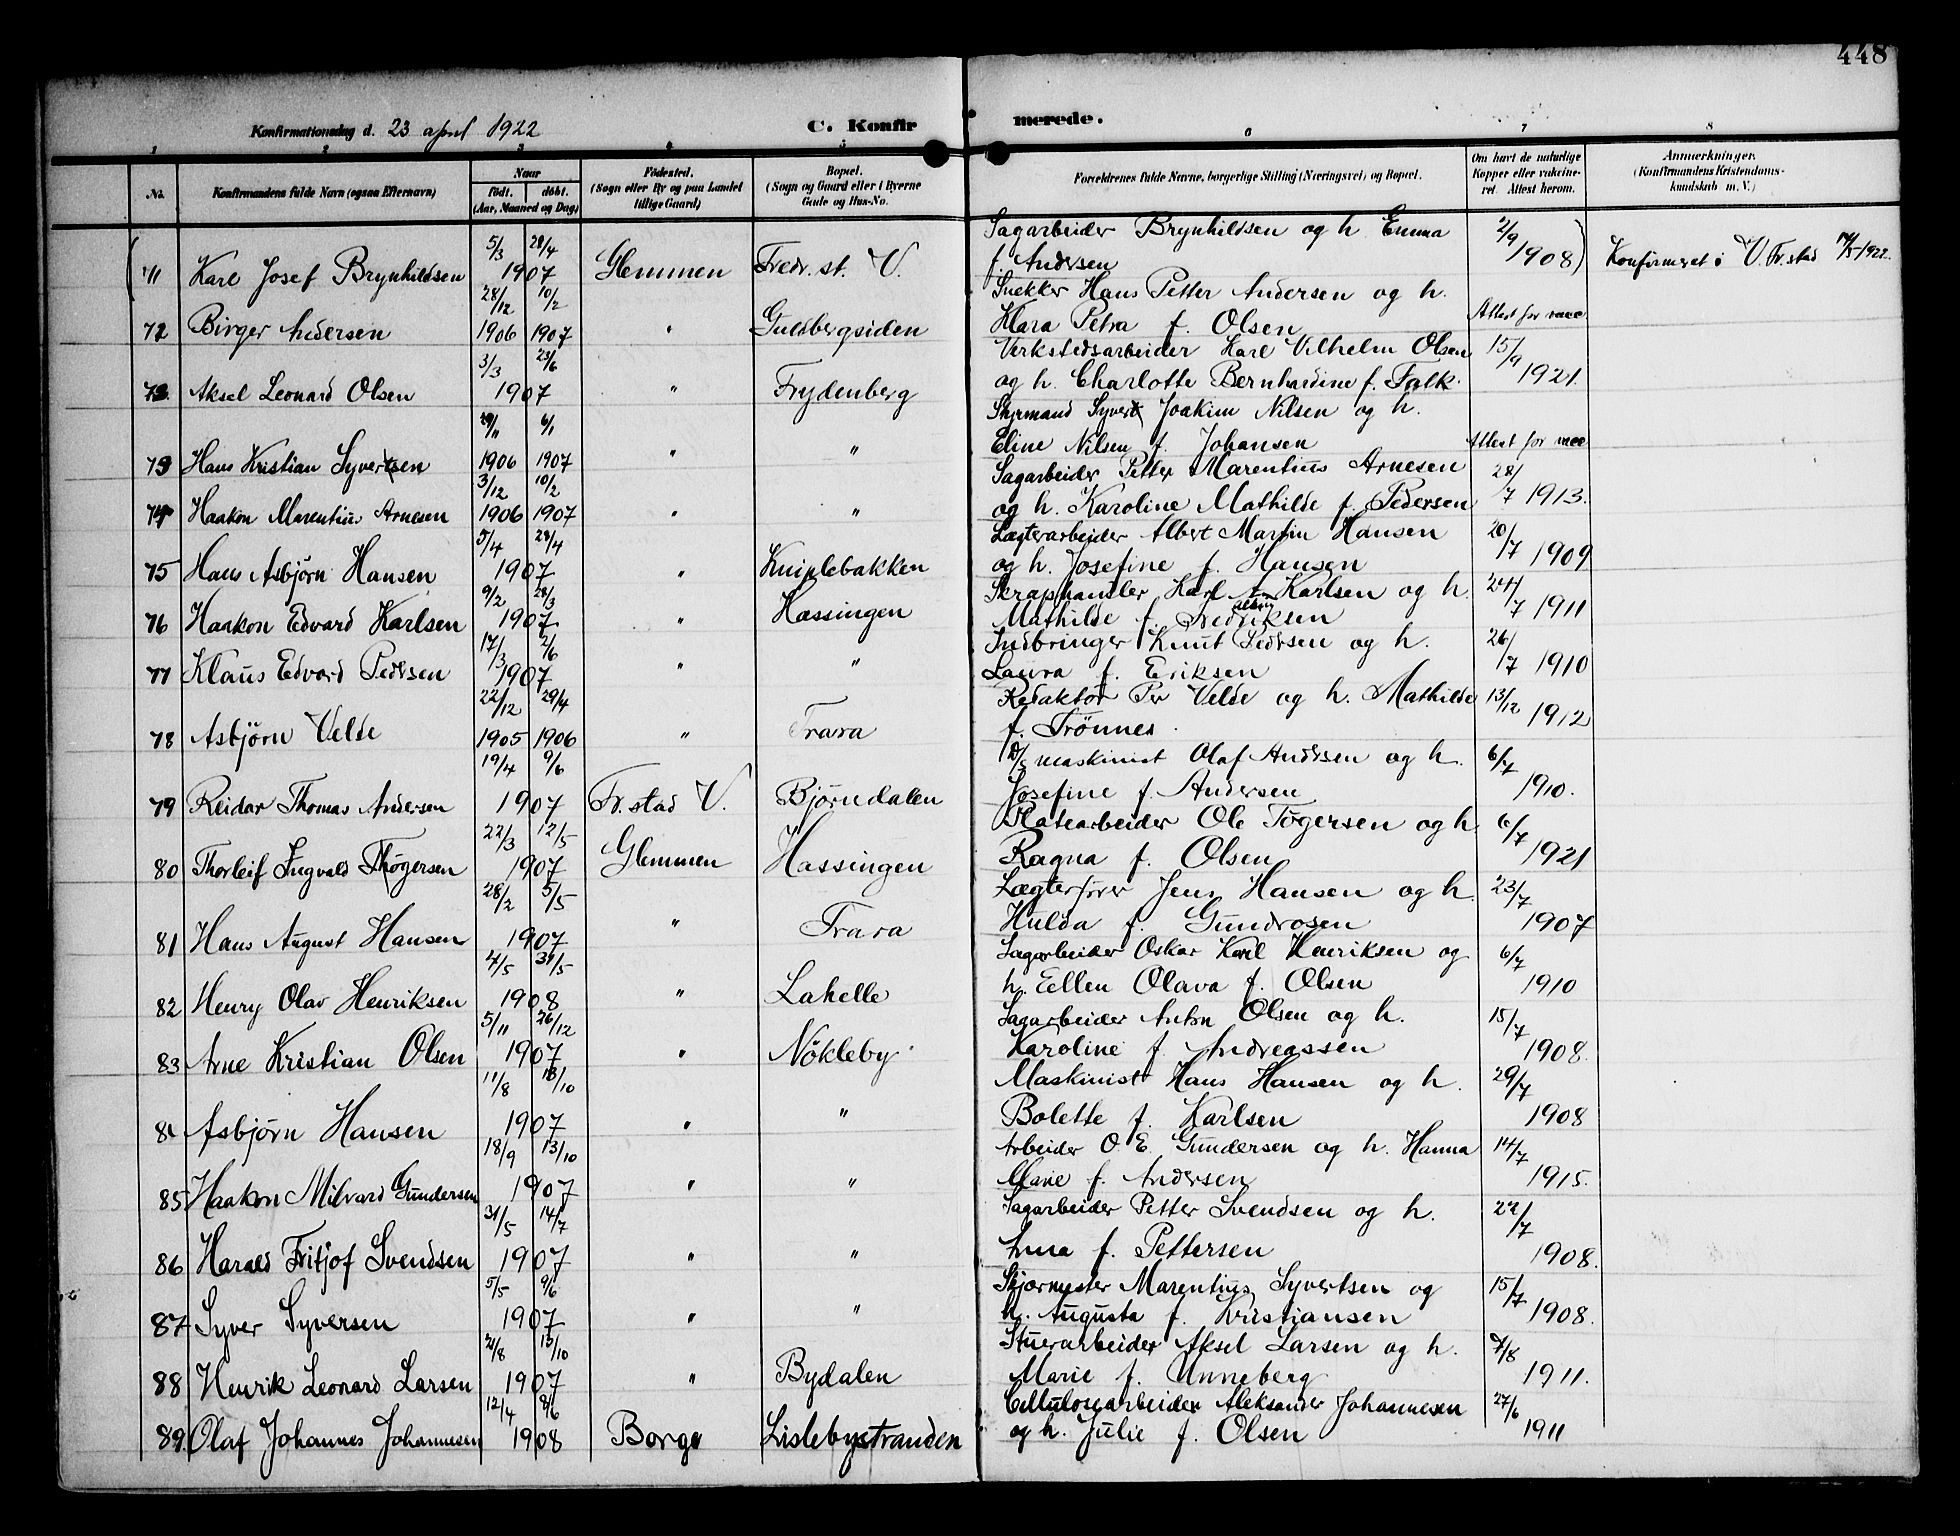 448
Konfirmationsdag d. 23 april 1922 C. Konfirmerede.
1 2 3 4 5 6 7 8
No. Konfirmandens fulde Navn (ogsaa Efternavn) Naar født. døbt. (Aar, Maaned og Dag) Fødested. (Sogn eller By og paa Landet tillige Gaard) Bopæl. (Sogn og Gaard eller i Byerne Gade og Hus-No. Forældrenes fulde Navne, borgerlige Stilling (Næringsvei) og Bopæl. Om havt de naturlige Kopper eller vakcineret. Attest herom. Anmærkninger. (Konfirmandens Kristendomskundskab m. V.)
Sagarbeider Brynhildsen og h. Emma
(71 Karl Josef Brynhildsen 5/3 28/4 1907 Glemmen Fredr.st. V. f. Andersen 2/9 1908) Konfirmeret i V. Fr.stad 14/5-1922.
Snekker Hans Petter Andersen og h.
72 Birger Andersen 28/12 1906 10/2 1907 " Guldbergsiden Klara Petra f. Olsen Attest for vacc
Verkstedsarbeider Karl Vilhelm Olsen
Aksel Leonard Olsen 3/3 23/6 1907 " Frydenberg og h. Charlotte Bernhardine f. Falk. 15/9 1921
Styrmand Syvert Joakim Nilsen og h.
73 Hans Kristian Syvertsen 1906 6/1 1907 " " Eline Nilsen f. Johansen Attest for vacc
Sagarbeider Petter Marentius Arnesen
74 Haakon Marentius Arnesen 3/12 1906 10/2 1907 " " og h. Karoline Mathilde f. Pedersen 28/7 1913.
Lægterarbeider Albert Martin Hansen
75 Hans Asbjörn Hansen 5/4 28/4 1907 " Kniplebakken og h. Josefine f. Hansen 20/7 1909
Skraphandler Karl Albin Karlsen og h.
76 Haakon Edvard Karlsen 9/2 28/3 1907 " Hassingen Mathilde f. Fredriksen 24/7 1911
Indbringer Knut Pedersen og h.
77 Klaus Edvard Pedersen 17/3 2/6 1907 " " Laura f. Eriksen 26/7 1910
Redaktör Per Velde og h. Mathilde
78 Asbjörn Velde 22/12 1905 29/4 1906 " Trara f. Trönnes. 13/12 1912
D/s maskinist Olaf Andersen og h.
79 Reidar Thomas Andersen 19/4 9/6 1907 Fr.stad V. Björndalen Josefine f. Andersen 6/7 1910.
Platearbeider Ole Tögersen og h
80 Thorleif Ingvald Thögersen 22/3 12/5 1907 Glemmen Hassingen Ragna f. Olsen 6/7 1921
Lægterförer Jens Hansen og h.
81 Hans August Hansen 28/2 5/5 1907 " Trara Hulda f. Gundrosen 23/7 1907
Sagarbeider Oskar Karl Henriksen og
82 Henry Olav Henriksen 4/5 31/5 1908 " Lahelle h. Eellen Olava f. Olsen 6/7 1910
Sagarbeider Anton Olsen og h.
83 Arne Kristian Olsen 5/11 26/12 1907 " Nökleby. Karoline f. Andreassen 15/7 1908.
Maskinist Hans Hansen og h.
84 Asbjörn Hansen 11/8 13/10 1907 " " Bolette f. Karlsen 29/7 1908
Arbeider O. E. Gundersen og h. Hanna
85 Haakon Milvard Gundersen 18/9 13/10 1907 " " Marie f. Andersen 14/7 1915.
Sagarbeider Petter Svendsen og h.
86 Harald Fritjof Svendsen 31/5 14/7 1907 " " Anna f. Pettersen 22/7 1908.
Skjærmester Marentius Syvertsen og
87 Syver Syversen 5/5 9/6 1907 " " h. Augusta f. Kristiansen 15/7 1908.
Stuerarbeider Aksel Larsen og h.
88 Henrik Leonard Larsen 21/8 13/10 1907 " Bydalen Marie f. Unneberg 7/8 1911.
Cellulosearbeider Aleksander Johannesen
89. Olaf Johannes Johannesen 12/4 8/6 1908 Borge Lislebystranden og h. Julie f. Olsen 27/6 1911